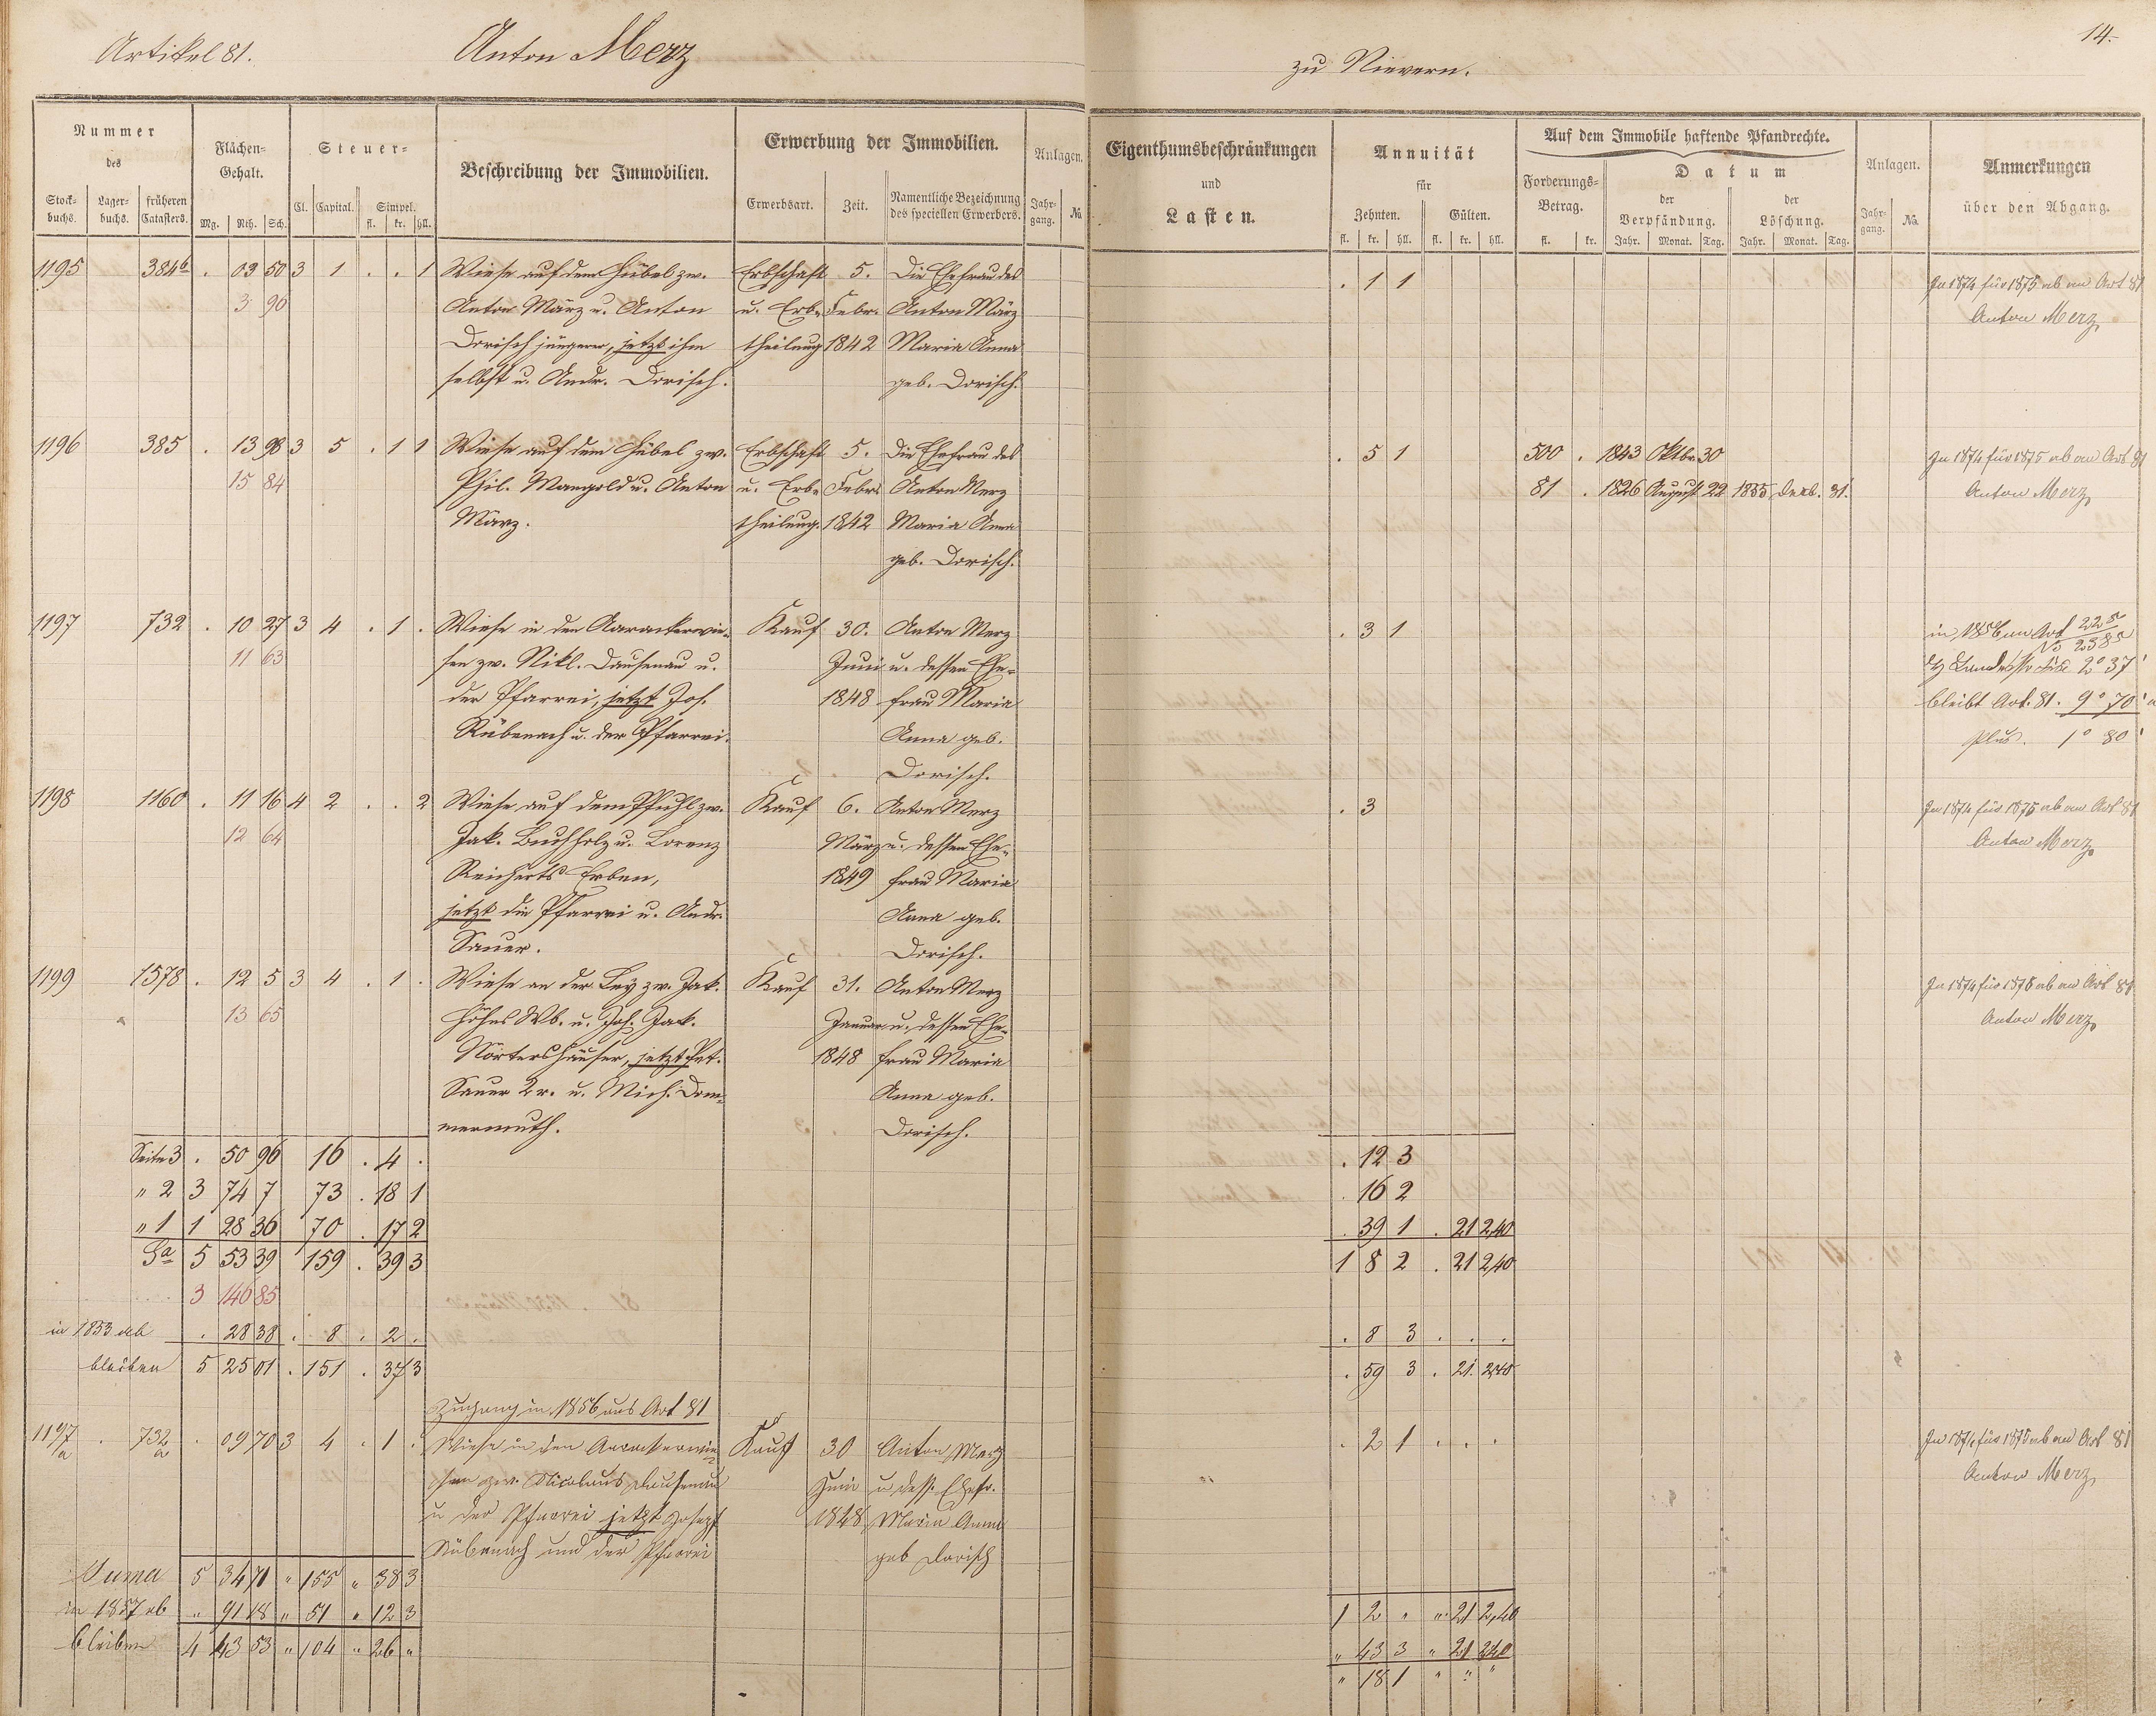 Artikel 81.
Anton Merz
zu Nievern.
14.
Nummer
des
Stock-
buchs.
Lager-
buchs.
früheren
Catasters.
Flächen-
Gehalt.
Mg.
Rth.
Sch.
Steuer-
Cl.
Capital.
Simpel.
fl.
kr.
hll.
Beschreibung der Immobilien.
Erwerbung der Immobilien.
Erwerbsart.
Zeit.
Namentliche Bezeichnung
des speciellen Erwerbers.
Anlagen.
Jahr-
gang.
No.
Eigenthumsbeschränkungen
und
Lasten.
Annuität
für
Zehnten.
Gülten.
fl.
kr.
hll.
fl.
kr.
hll.
Auf dem Immobile haftende Pfandrechte.
Forderungs-
Betrag.
fl.
kr.
Datum
der
Verpfändung.
Jahr.
Monat.
Tag.
der
Löschung.
Jahr.
Monat.
Tag.
Anlagen.
Jahr-
gang.
No.
Anmerkungen
über den Abgang.
1195 384b . 09 50 3 1 . . 1 Wiese auf dem Hübel zw. Erbschaft 5. Die Ehefrau des . 1 1 In 1874 für 1875 ab an Art 81
3 90 Anton März u. Anton u. Erb- Febr. Anton März Anton Merz
Dorisch jüngerer, jetzt ihm theilung 1842 Maria Anna
selbst u. Andr. Dorisch. geb. Dorisch.
1196 385 . 13 98 3 5 . 1 1 Wiese auf dem Hübel zw. Erbschaft 5. Die Ehefrau des . 5 1 500 . 1843 Oktbr 30 In 1874 für 1875 ab an Art 81
15 84 Phil. Mangold u. Anton u. Erb- Febr. Anton Merz 81 . 1826 August 22 1855 Dezb. 31. Anton Merz
März. theilung. 1842 Maria Anna
geb. Dorisch.
1197 732 . 10 27 3 4 . 1 . Wiese in den Aarackerwie- Kauf 30. Anton Merz . 3 1 in 1856 an Art 225
No 2385
11 63 sen zw. Nikl. Dausenau u. Juni u. dessen Ehe- 2° 37'
der Pfarrei, jetzt Jos. 1848 frau Maria bleibt Art. 81. 9° 70'
Rübenach u. der Pfarrei. Anna geb. plus. 1° 80'
Dorisch.
1198 1160 . 11 16 4 2 . . 2 Wiese auf dem Pfuhl zw. Kauf 6. Anton Merz . 3 In 1874 für 1875 ab an Art 81
12 64 Jak. Buchholz u. Lorenz März u. dessen Ehe- Anton Merz
Reicherts Erben, 1849 frau Maria
jetzt die Pfarrei u. Andr. Anna geb.
Sauer. Dorisch.
1199 1578 . 12 5 3 4 . 1 . Wiese an der Ley zw. Jak. Kauf 31. Anton Merz In 1874 für 1875 ab an Art 81
13 65 Höhns Wb. u. Joh. Jack. Januar u. dessen Ehe- Anton Merz
Nörtershäuser, jetzt Pet. 1848 frau Maria
Sauer 2r. u. Mich. Dom- Anna geb.
mermuth. Dorisch.
Seite 3 . 50 96 16 . 4 . . 12 3
" 2 3 74 7 73 . 18 1 . 16 2
" 1 1 28 36 70 . 17 2 . 39 1 . 21 2,40
Sa 5 53 39 159 . 39 3 1 8 2 . 21 2,40
3 146 85
in 1853 ab . 28 38 . 8 . 2 . . 8 3 . . .
bleiben 5 25 01 . 151 . 37 3 . 59 3 . 21. 2,40
Zugang in 1856 aus Art 81
1197/a . 732/a . 09 70 3 4 . 1 . Wiese in den Aarackerwie- Kauf 30 Anton Merz . 2 1 . . . In 1874 für 1875 ab an Art 81
sen zw. Nicolaus Dausenau Juni u. dess. Ehefr. Anton Merz
u der Pfarrei jetzt Josef 1848 Maria Anna
Rübenach und der Pfarrei geb Dorisch
Suma 5 34 71 " 155 " 38 3 1 2 " " 21 2,40
in 1857 ab " 91 18 " 51 " 12 3 " 43 3 " 21 2,40
bleiben 4 43 53 " 104 " 26 " " 18 1 " " "